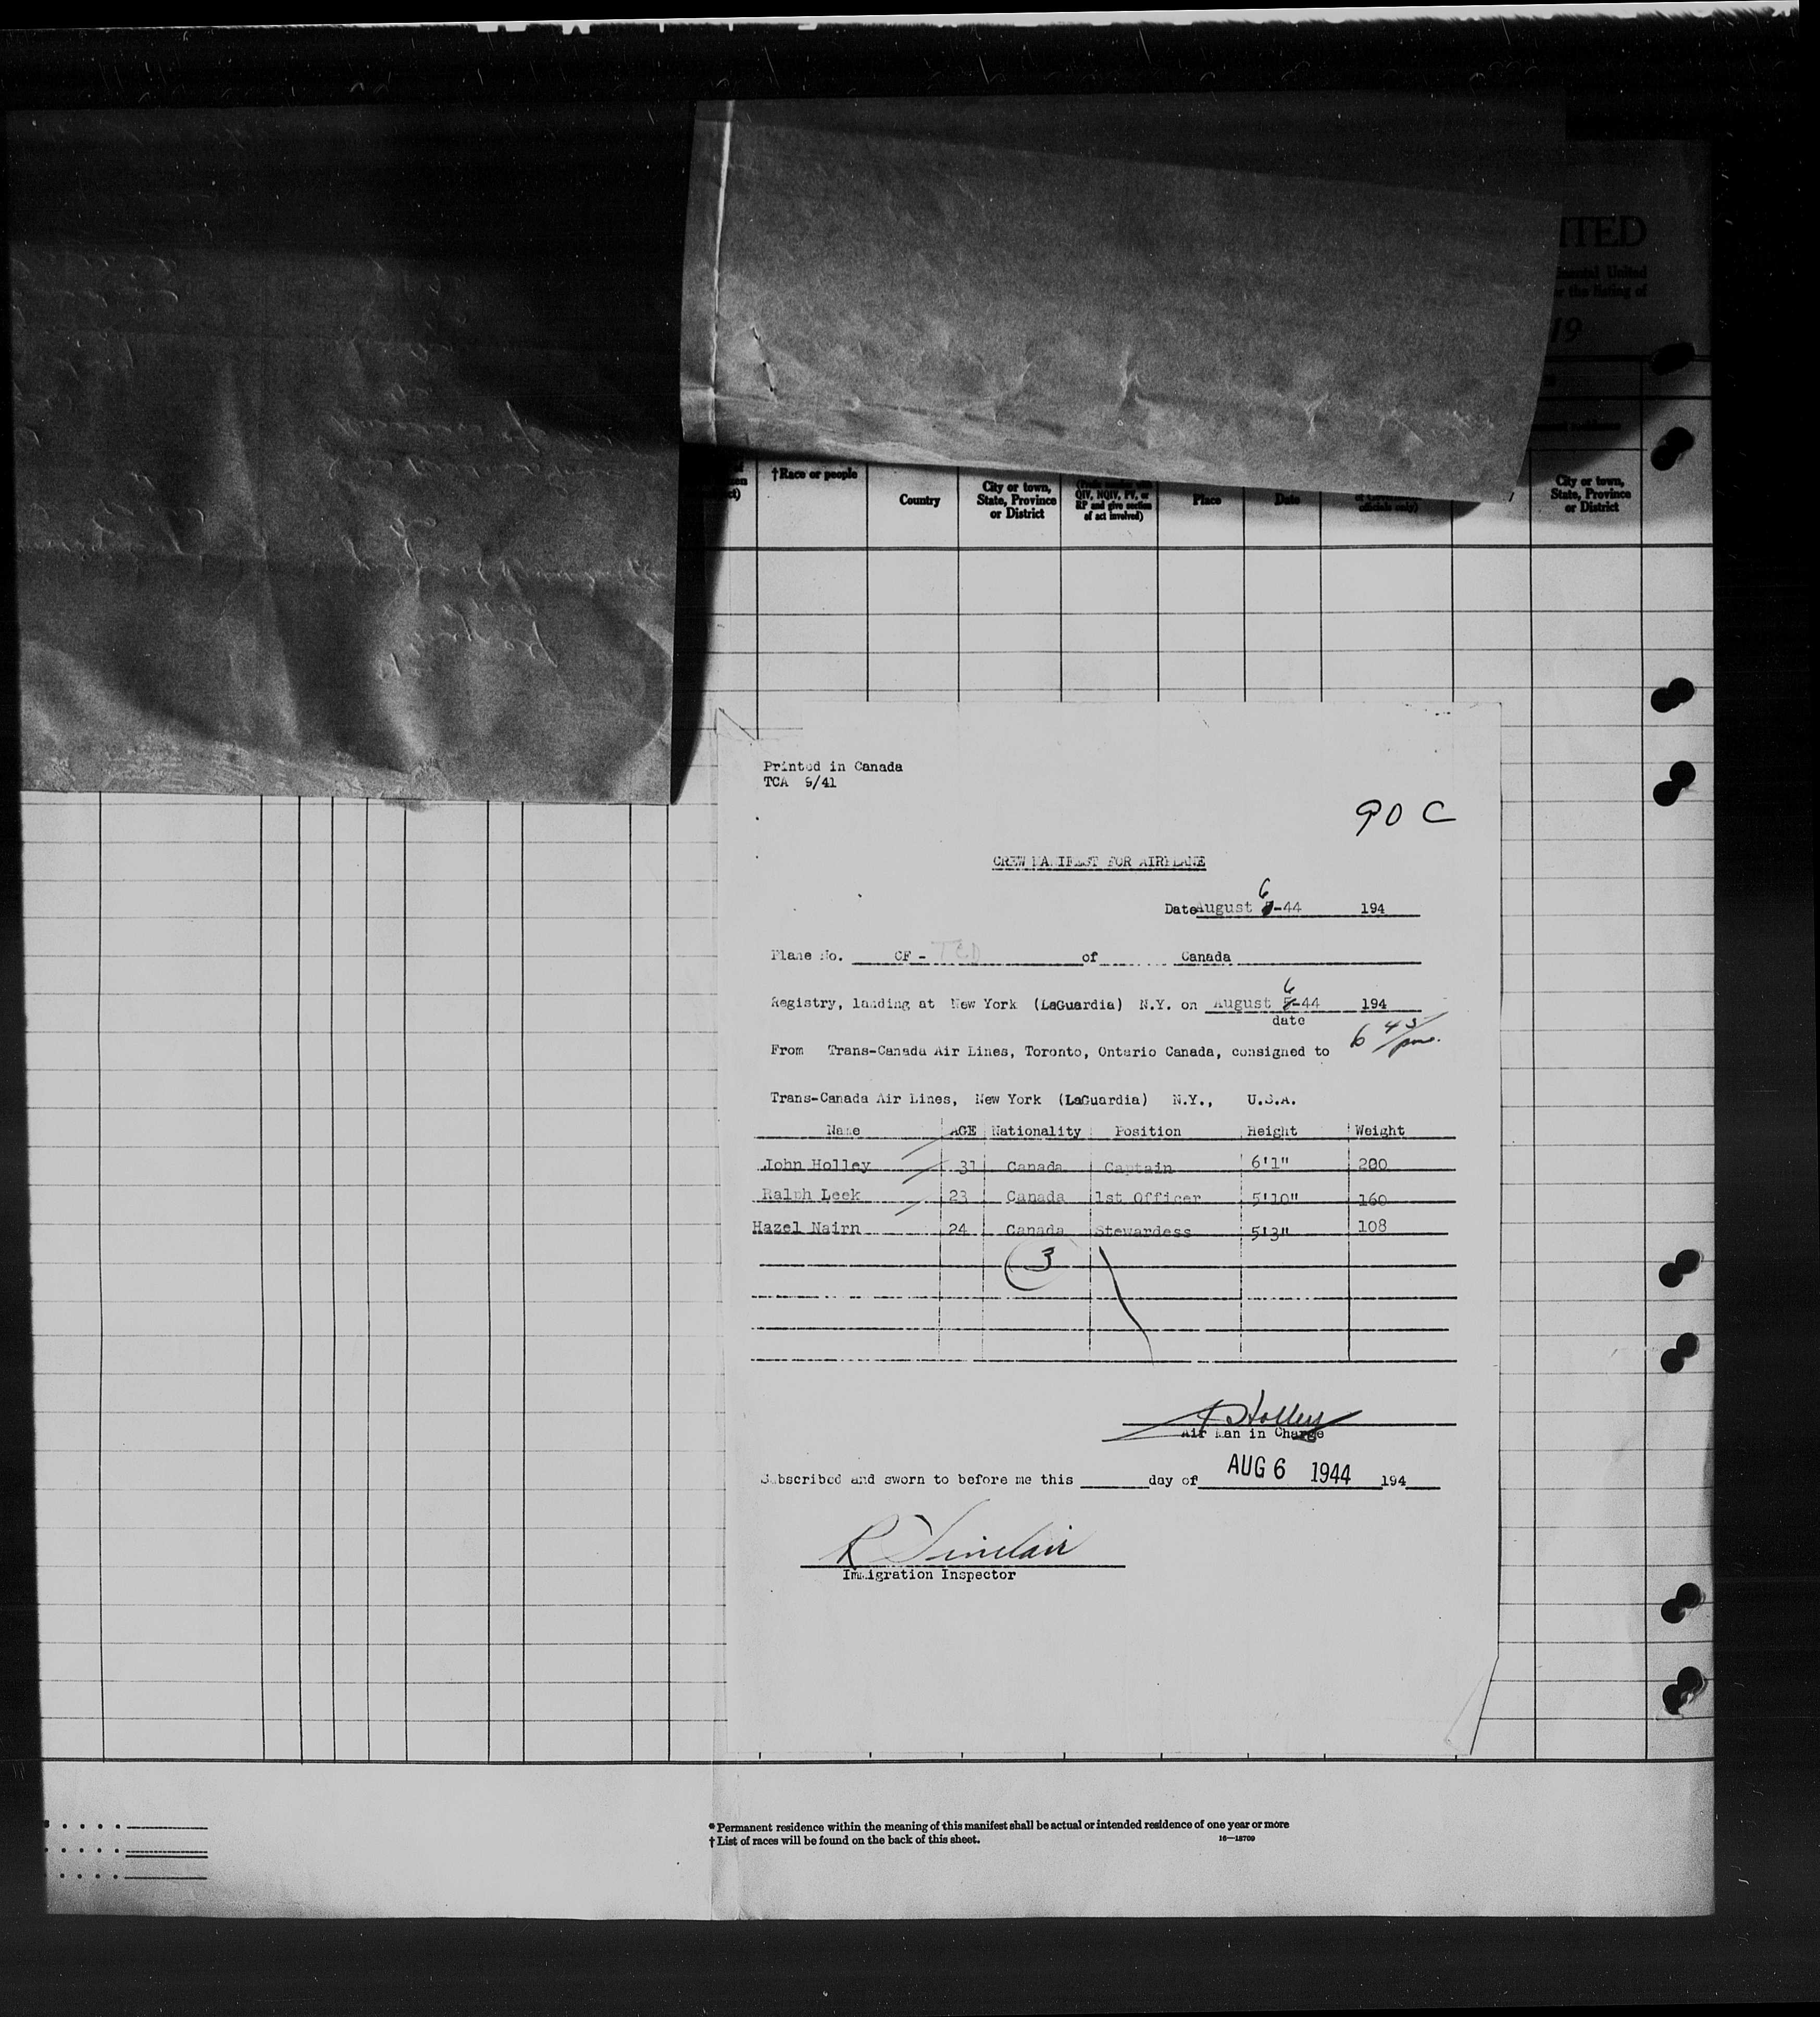 ITED
United
or the listing of
19
†Race or people
Country
City or town,
State, Province
or District
QIV, NQIV, PV, or
RP and give section
of act involved)
Place
Date
officials only)
City or town,
State, Province
or District
Printed in Canada
TCA 9/41
90 C
CREW MANIFEST FOR AIRPLANE
Date August 6-44 194
Plane No. CF - TCD of Canada
Registry, landing at New York (LaGuardia) N.Y. on August 6-44 194
date
From Trans-Canada Air Lines, Toronto, Ontario Canada, consigned to 6 45/pm.
Trans-Canada Air Lines, New York (LaGuardia) N.Y., U.S.A.
Name AGE Nationality Position Height Weight
John Holley 31 Canada Captain 6'1" 200
Ralph Leek 23 Canada 1st Officer 5'10" 160
Hazel Nairn 24 Canada Stewardess 5'3" 108
3
J Holley
Air Man in Charge
Subscribed and sworn to before me this day of AUG 6 1944 194
R Sinclair
Immigration Inspector
*Permanent residence within the meaning of this manifest shall be actual or intended residence of one year or more
†List of races will be found on the back of this sheet. 16—18709